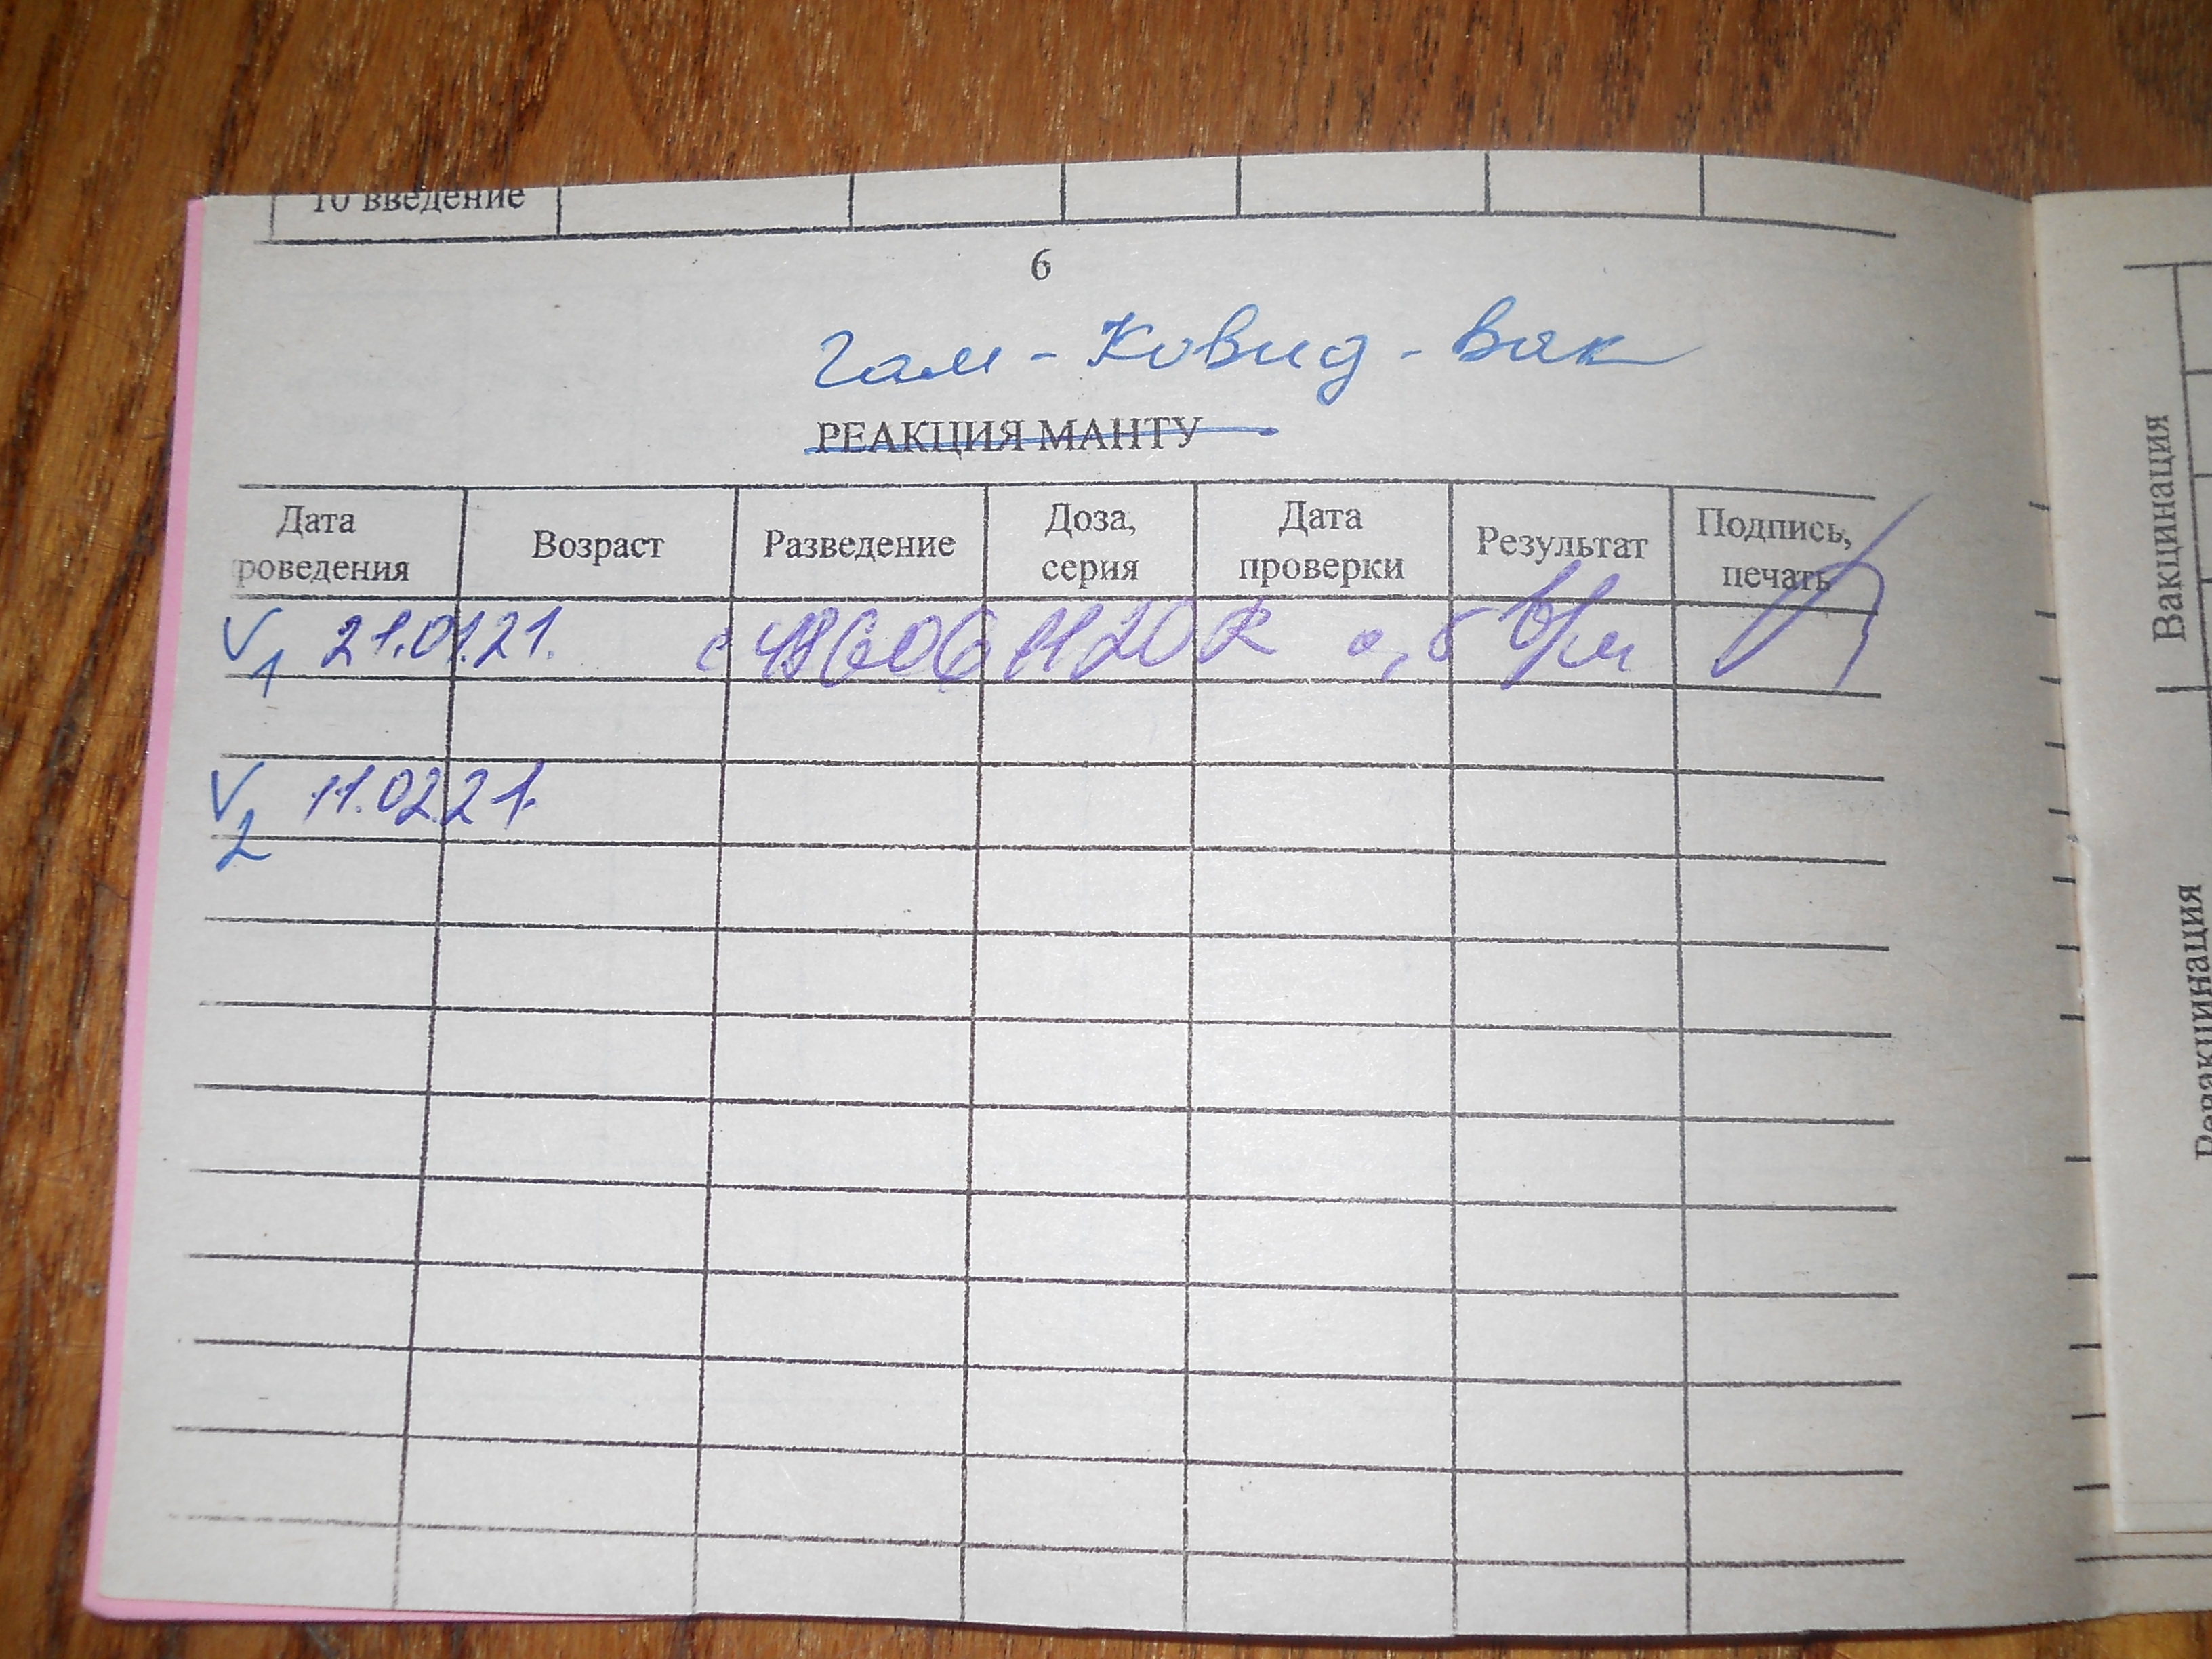 10 введение
6
Гам-Ковид-Вак
РЕАКЦИЯ МАНТУ
Дата роведения Возраст Разведение Доза, серия Дата проверки Результат Подпись, печать
V1 21.01.21. с 486061120R 0,5 в/м
V2 11.02.21.
Вакцинация
Ревакцинация